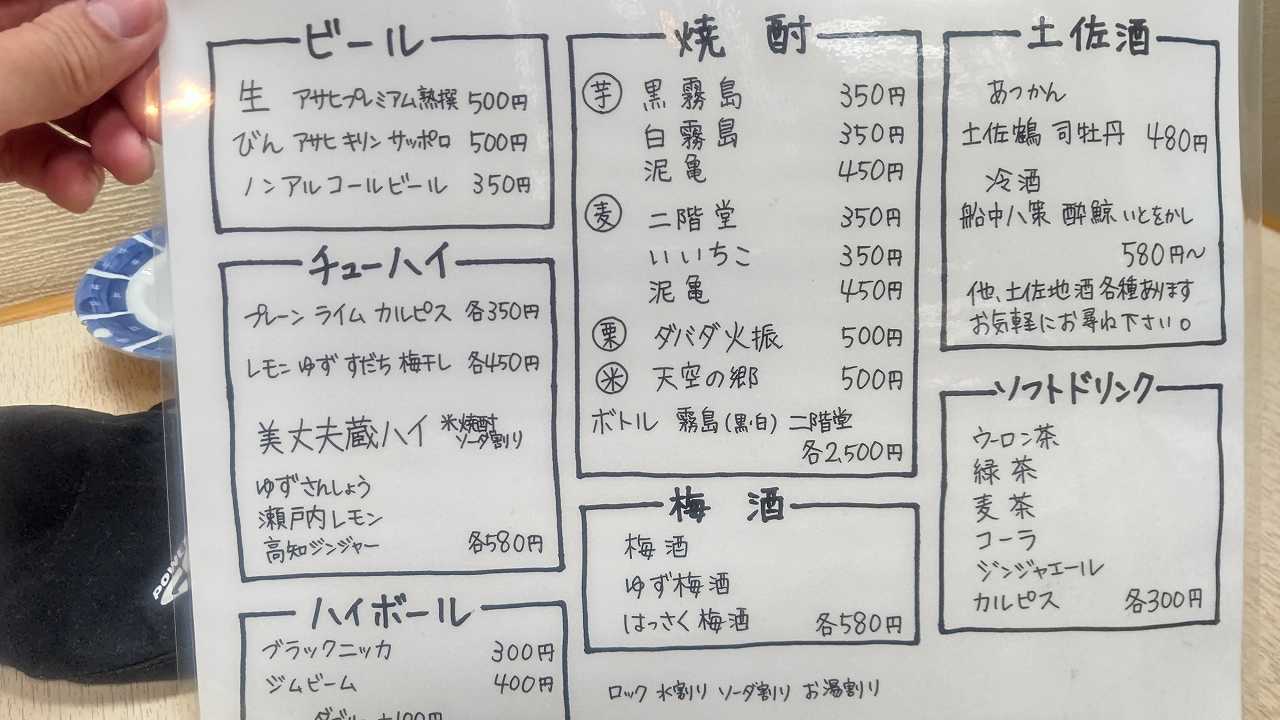 ビール
生 アサヒプレミアム熟撰 500円
びん アサヒ キリン サッポロ 500円
ノンアルコールビール 350円
チューハイ
プレーン ライム カルピス 各350円
レモン ゆず すだち 梅干し 各450円
美丈夫蔵ハイ 米焼酎
ソーダ割り
ゆずさんしょう
瀬戸内レモン
高知ジンジャー 各580円
ハイボール
ブラックニッカ 300円
ジムビーム 400円
ダブル +100円
焼酎
芋 黒霧島 350円
白霧島 350円
泥亀 450円
麦 二階堂 350円
いいちこ 350円
泥亀 450円
栗 ダバダ火振 500円
米 天空の郷 500円
ボトル 霧島(黒・白) 二階堂
各2,500円
梅酒
梅酒
ゆず梅酒
はっさく梅酒 各580円
ロック 水割り ソーダ割り お湯割り
土佐酒
あつかん
土佐鶴 司牡丹 480円
冷酒
船中八策 酔鯨 いとをかし
580円～
他、土佐地酒各種あります
お気軽にお尋ね下さい。
ソフトドリンク
ウーロン茶
緑茶
麦茶
コーラ
ジンジャエール
カルピス 各300円